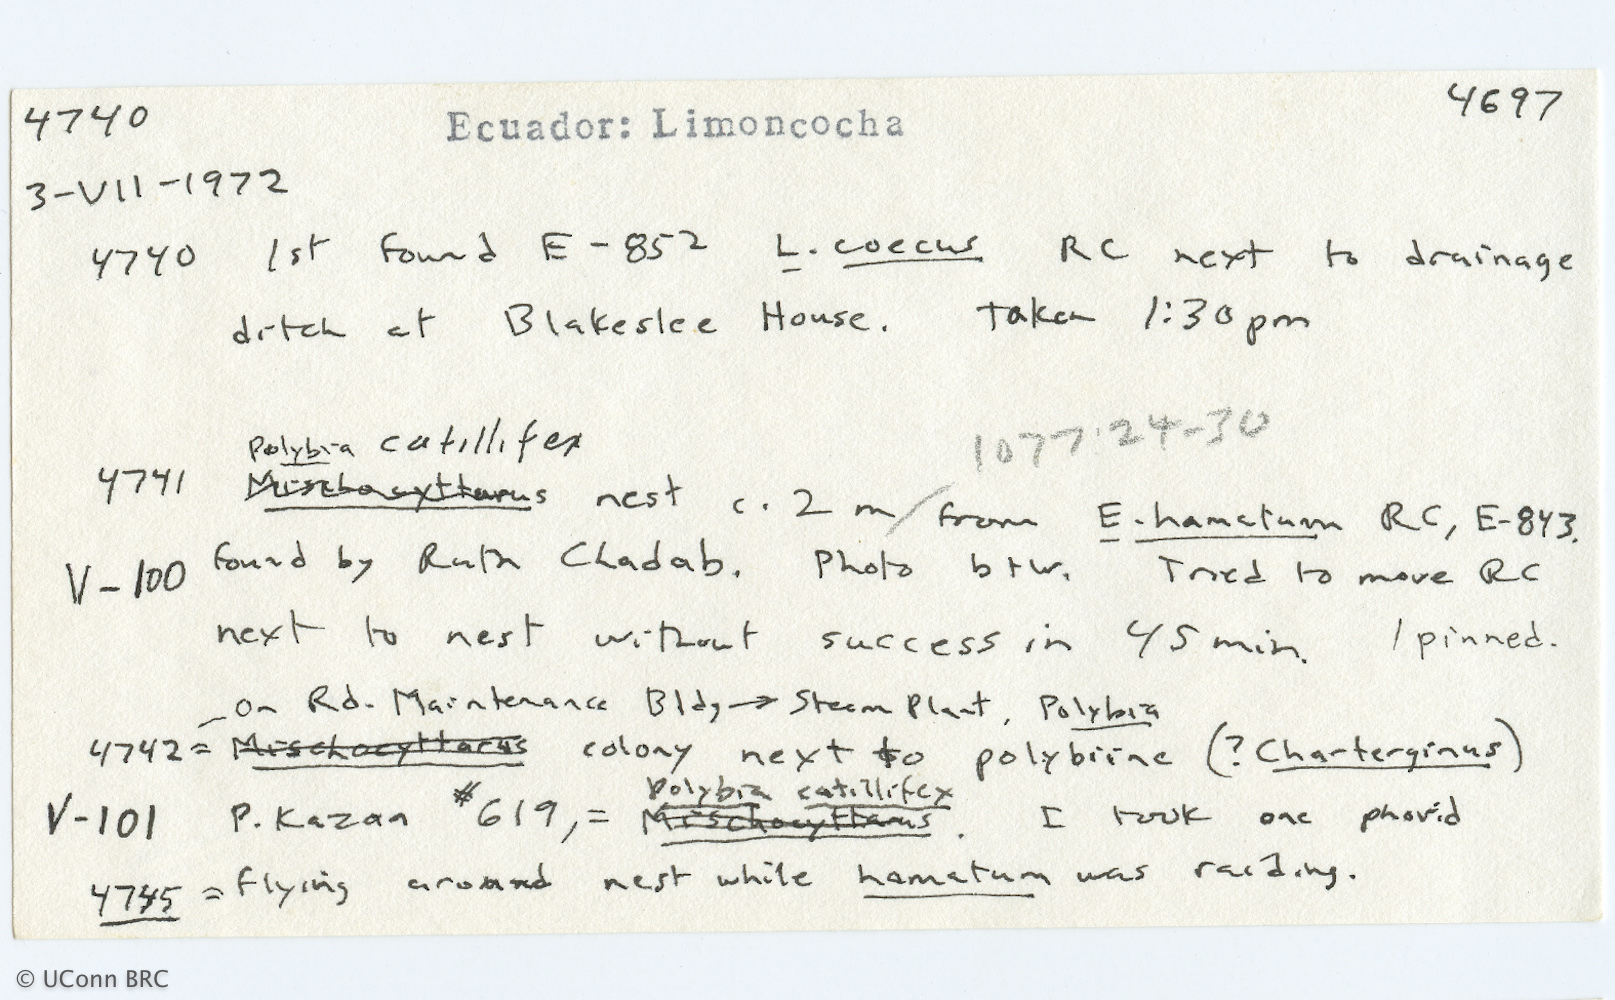 4740 Ecuador: Limoncocha 4697
3-VII-1972
4740 1st found E-852 L. coecus RC next to drainage
ditch at Blakeslee House. Taken 1:30 pm
1077:24-30
Polybia catillifex
4741 Mischocyttarus nest c. 2 m/from E. hamatum RC, E-843.
V-100 found by Ruth Chadab. Photo b+w. Tried to move RC
next to nest without success in 45 min. 1 pinned.
on Rd. Maintenance Bldg → Steam Plant, Polybia
4742 = Mischocyttarus colony next to polybiine (? Charterginus)
Polybia catillifex
V-101 P. Kazan #619, = Mischocyttarus. I took one phorid
4745 = flying around nest while hamatum was raiding.
© UConn BRC